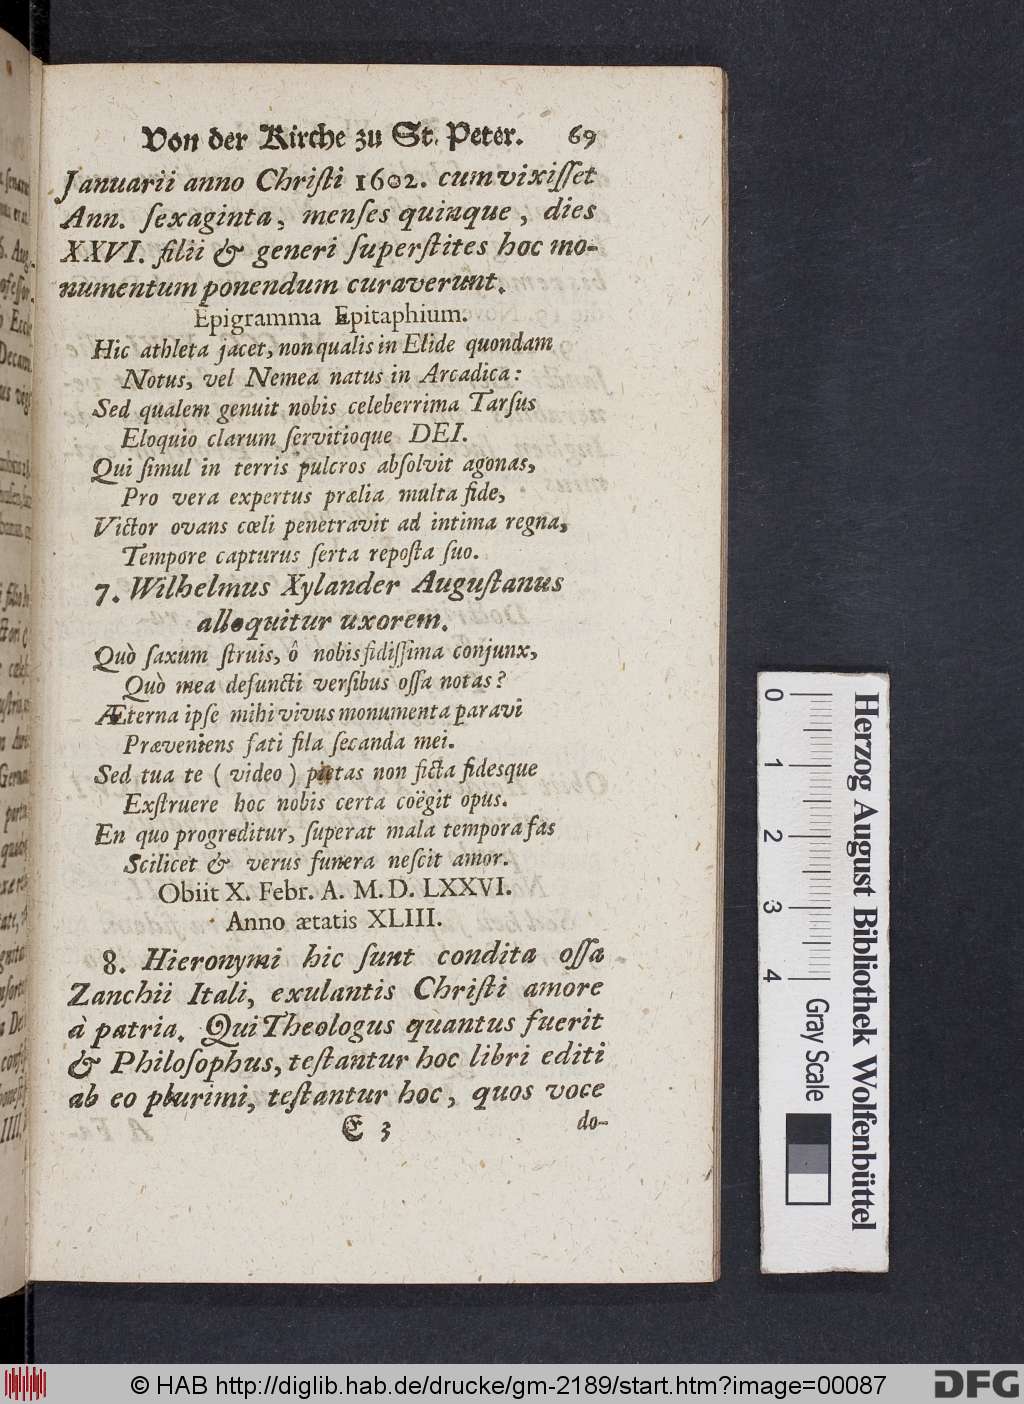 Von der Kirche zu St. Peter. 69
Januarii anno Chriſti 1602. cum vixiſſet
Ann. ſexaginta, menſes quinque, dies
XXVI. filii & generi ſuperſtites hoc mo-
numentum ponendum curaverunt.
Epigramma Epitaphium.
Hic athleta jacet, non qualis in Elide quondam
Notus, vel Nemea natus in Arcadica:
Sed qualem genuit nobis celeberrima Tarſus
Eloquio clarum ſervitioque DEI.
Qui ſimul in terris pulcros abſolvit agonas,
Pro vera expertus prælia multa fide,
Victor ovans cœli penetravit ad intima regna,
Tempore capturus ſerta repoſta ſuo.
7. Wilhelmus Xylander Auguſtanus
alloquitur uxorem.
Quò ſaxum ſtruis, ô nobis fidiſſima conjunx,
Quò mea defuncti verſibus oſſa notas?
Æterna ipſe mihi vivus monumenta paravi
Præveniens fati fila ſecanda mei.
Sed tua te (video) pietas non ficta fidesque
Exſtruere hoc nobis certa coëgit opus.
En quo progreditur, ſuperat mala tempora fas
Scilicet & verus funera neſcit amor.
Obiit X. Febr. A. M. D. LXXVI.
Anno ætatis XLIII.
8. Hieronymi hic ſunt condita oſſa
Zanchii Itali, exulantis Chriſti amore
à patria. Qui Theologus quantus fuerit
& Philoſophus, teſtantur hoc libri editi
ab eo plurimi, teſtantur hoc, quos voce
E 3 do-
0 1 2 3 4
Gray Scale
Herzog August Bibliothek Wolfenbüttel
© HAB http://diglib.hab.de/drucke/gm-2189/start.htm?image=00087
DFG